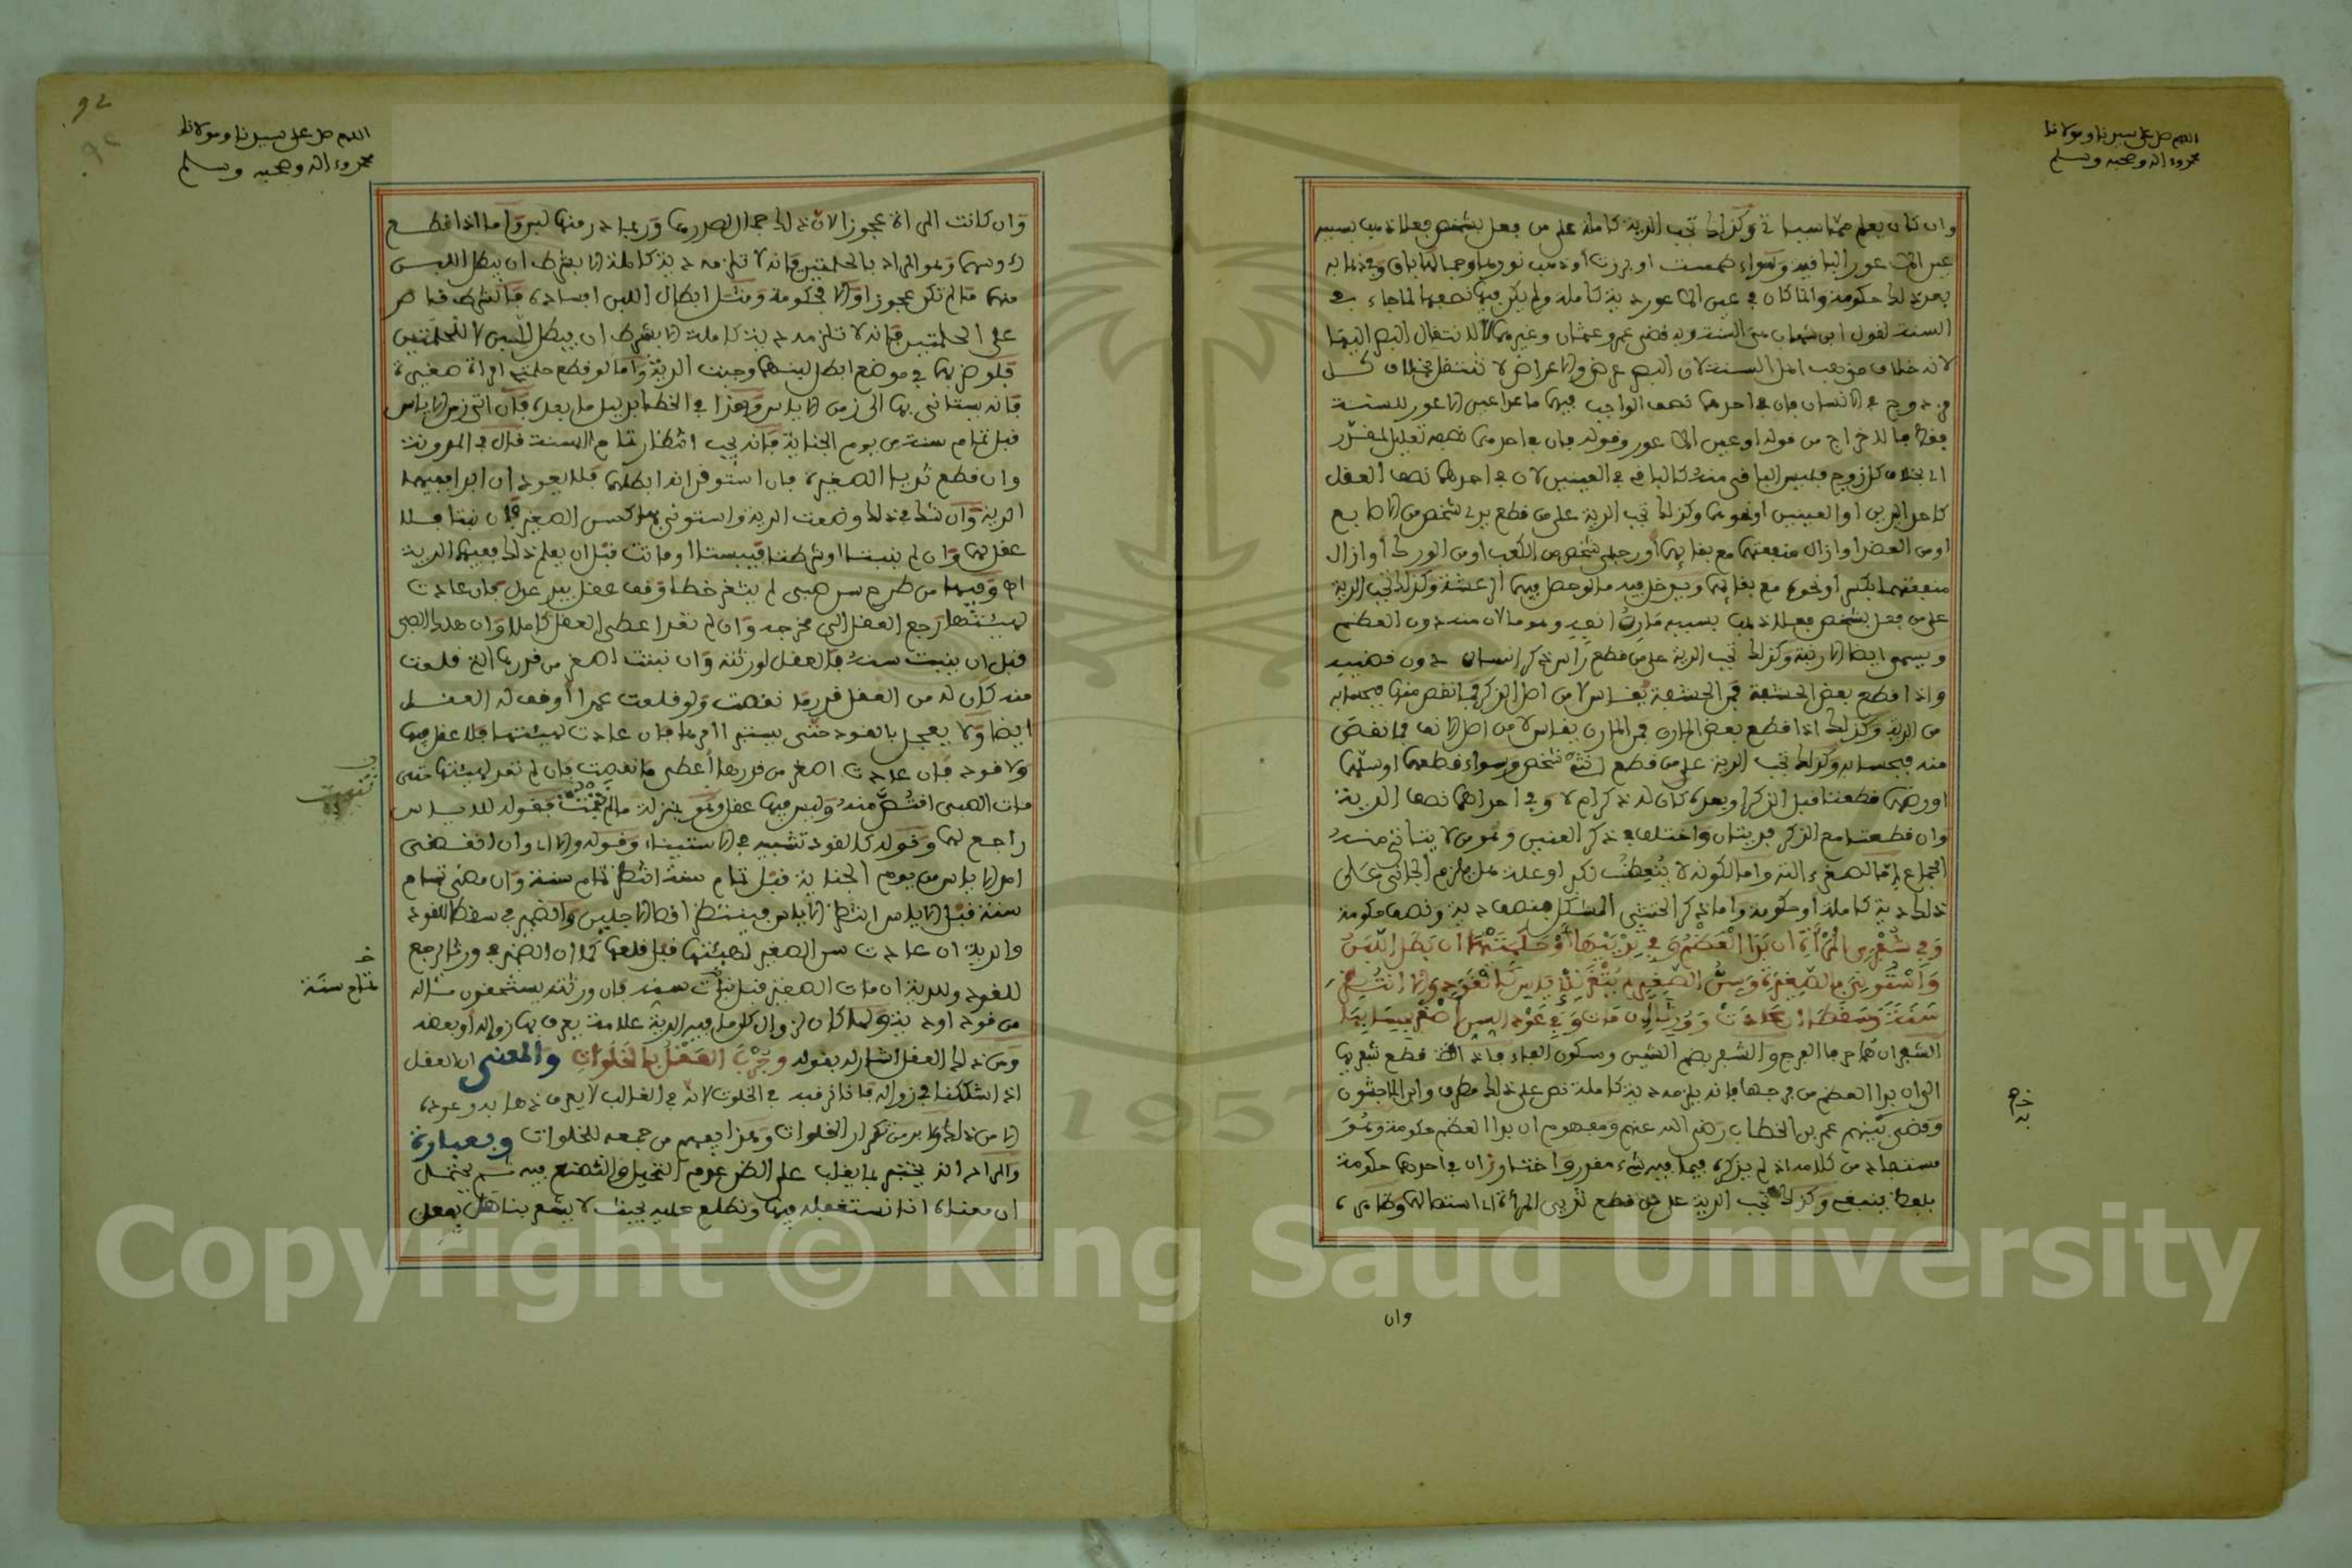 اللهم صل على سيدنا ومولانا
محمد وءاله وصحبه وسلم
وان كان يعلم
عين الاعور الباقية وسواء طمست او برزت او ذهب نورها وجمالها باق
بعد ذلك حكومة وانما كان في عين الاعور دية كاملة ولم يكن فيها نصفها لما جاء في
السنة لقول ابن شهاب مضت السنة وبه قضى عمر وعثمان وغيرهما لا لانتقال البصر اليها
لانه خلاف مذهب اهل السنة لان البصر عرض والاعراض لا تنتقل بخلاف كل
زوج في الانسان فان في احدهما نصف الواجب فيهما ما عدا عين الاعور للسنة
من قوله او عين الاعور وقوله فان في احدهما نصفه تعليل لمقدر
اي بخلاف كل زوج فليس الباقي منه كالباقي في العينين لان في احدهما نصف العقل
كاحد اليدين او العينين او نحوهما وكذلك تجب الدية على من قطع يدي شخص من الاصابع
او من العضد او ازال منفعتهما مع بقائهما او رجلي شخص من الكعب او من الورك او ازال
منفعتهما بكسر او نحوه مع بقائهما ويدخل فيه ما لو حصل فيهما الرعشة وكذلك تجب الدية
على من فعل بشخص فعلا ذهب بسببه مارن انفه وهو ما لان منه دون العظم
ويسمى ايضا الارنبة وكذلك تجب الدية على من قطع راس ذكر انسان دون قضيبه
واذا قطع بعض الحشفة فمن الحشفة يقاس لا من اصل الذكر فما نقص منها فبحسابه
من الدية وكذلك اذا قطع بعض المارن فمن المارن يقاس لا من اصل الانف فما نقص
منه فبحسابه وكذلك تجب الدية على من قطع انثيي شخص وسواء قطعهما او سلهما
او رضهما قطعتا قبل الذكر او بعده كان له ذكر ام لا وفي احداهما نصف الدية
وان قطعتا مع الذكر فديتان واختلف في ذكر العنين وهو من لا يتاتى منه
الجماع اما لصغر ءالته واما لكونه لا ينعظ لكبر او علة هل يلزم الجاني على
ذلك دية كاملة او حكومة واما ذكر الخنثى المشكل فنصف دية ونصف حكومة
وفي شفري المرأة ان بدا العظم وفي ثدييها او حلمتيهما ان بطل اللبن
واستؤني بالصغيرة وسن الصغير لم يثغر للاياس كالقود والا انتظر
سنة وسقطا ان عادت وورثا ان مات وفي عود السن اصغر بحسابها
الشفران هما حرفا الفرج والشفر بضم الشين وسكون الفاء فاذا قطع شفريها
الى ان بدا العظم من فرجها فانه يلزمه دية كاملة نص على ذلك مطرف وابن الماجشون
وقضى بينهم عمر بن الخطاب رضي الله عنهم ومفهوم ان بدا العظم حكومة وهو
مستفاد من كلامه اذ لم يذكر فيما فيه شيء مقدر واختار وزان في احدهما حكومة
وكذلك تجب الدية على من قطع ثديي المرأة
وان
92
اللهم صل على سيدنا ومولانا
محمد وءاله وصحبه وسلم
وان كانت المراة عجوزا لان ذلك جمال لصدرها وربما در منها لبن واما اذا قطع
وهو المراد بالحلمتين فانه لا تلزمه دية كاملة الا بشرط ان يبطل اللبن
منهما ما لم تكن عجوزا والا فحكومة ومثل ابطال اللبن افساده فالشرط قاصر
على الحلمتين فانه لا تلزمه دية كاملة الا بشرط ان يبطل اللبن
فلو ضربها في موضع ابطل لبنهما وجبت الدية واما لو قطع حلمتي امراة صغيرة
فانه يستانى بها الى زمن الاياس وهذا في الخطا بدليل ما بعده فان اتى زمن الاياس
قبل تمام سنة من يوم الجناية فانه يجب انتظار تمام السنة قال في المدونة
وان قطع ثديا الصغيرة فان استوقن انه ابطلهما فلا يعود ان ابدا ففيهما
الدية وان شك في ذلك وضعت الدية واستوني بهما كسن الصغير فان نبتا فلا
عقل لهما وان لم ينبتا او شرطتا فيبستا او ماتت قبل ان يعلم ذلك ففيهما الدية
اهـ وفيها من طرح سن صبي لم يثغر خطا وقف عقله بيد عدل فان عادت
لهيئتها رجع العقل الى مخرجه وان لم تعد اعطي العقل كاملا وان هلك الصبي
قبل ان ينبت سنه فالعقل لورثته وان نبتت اصغر من قدرها التي قلعت
منه كان له من العقل قدر ما نقصت ولو قلعت عمدا اوقف له العقل
ايضا ولا يعجل بالقود حتى يستبرا امرها فان عادت لهيئتها فلا عقل فيها
ولا قود فان عادت اصغر من قدرها اعطي ما نقصت فان لم تعد لهيئتها حتى
مات الصبي اقتص منه وليس فيها عقل وهو بمنزلة ما لم تنبت فقوله للاياس
راجع لهما وقوله كالقود تشبيه في الاستيناء وقوله والا اي وان انقضى
امد الاياس من يوم الجناية قبل تمام سنة انتظر تمام سنة وان مضى تمام
سنة قبل الاياس انتظر الاياس فينتظر اقصى الاجلين والضمير في سقطا للقود
والدية ان عادت سن الصغير لهيئتها قبل قلعها كما ان الضمير في ورثا رجع
للقود وللدية ان مات الصغير قبل نبات سنه فان ورثته يستحقون ماله
من قود او دية ولما كان لزوال كل ما فيه الدية علامة يعرف بها زواله او بعضه
ومن ذلك العقل اشار له بقوله وجرب العقل بالخلوات والمعنى ان العقل
اذا شككنا في زواله فاننا نرقبه في الخلوات لانه في الغالب لا يعرف ذهابه وعوده
الا من ذلك ولا بد من تكرار الخلوات وهذا يفهم من جمعه للخلوات وبعبارة
والمراد انه يختبر بما يغلب على الظن عدم التحيل والتصنع فيه ثم يحتمل
ان معناه اننا نستغفله فيها ونطلع عليه بحيث لا يشعر بنا هل يفعل
نقصت
تمام سنة